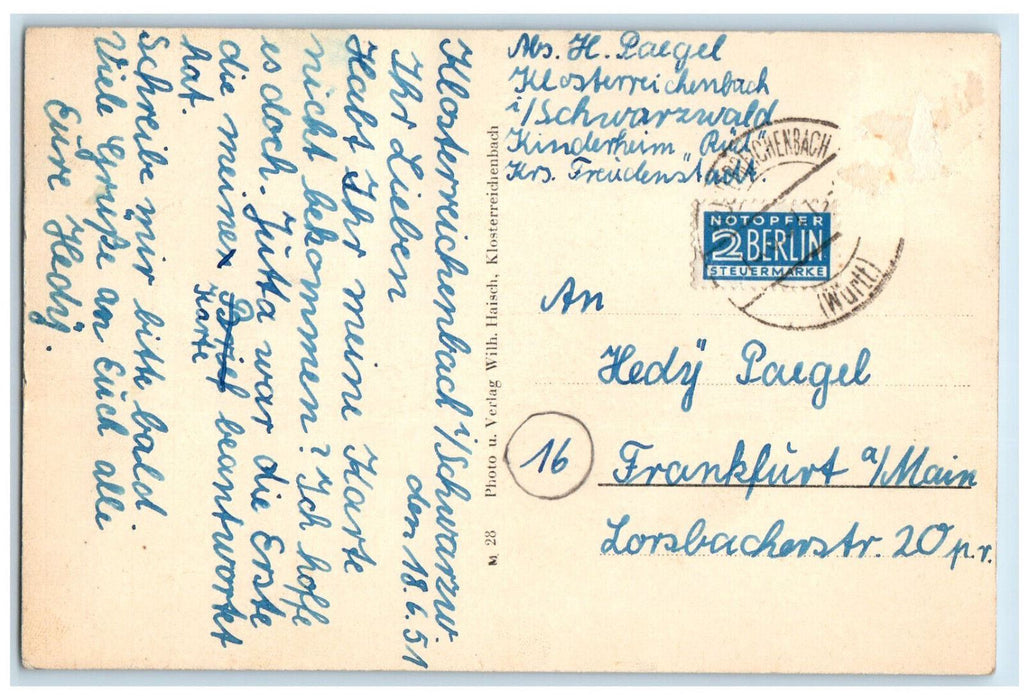 Klosterreichenbach i/Schwarzw.
den 18.6.51
Ihr Lieben
Habt Ihr meine Karte
nicht bekommen? Ich hoffe
es doch. Jutta war die Erste
die meine Brief beantwortet
Karte
hat.
Schreibe mir bitte bald.
Viele Grüße an Euch alle
Eure Hedÿ.
M 28 Photo u. Verlag Wilh. Haisch, Klosterreichenbach
Abs. H. Paegel
Klosterreichenbach
i/Schwarzwald
Kinderheim „Rüti"
Krs. Freudenstadt.
REICHENBACH
(Württ)
NOTOPFER
2 BERLIN
STEUERMARKE
An
Hedÿ Paegel
16
Frankfurt a/Main
Lorsbacherstr. 20 p.r.